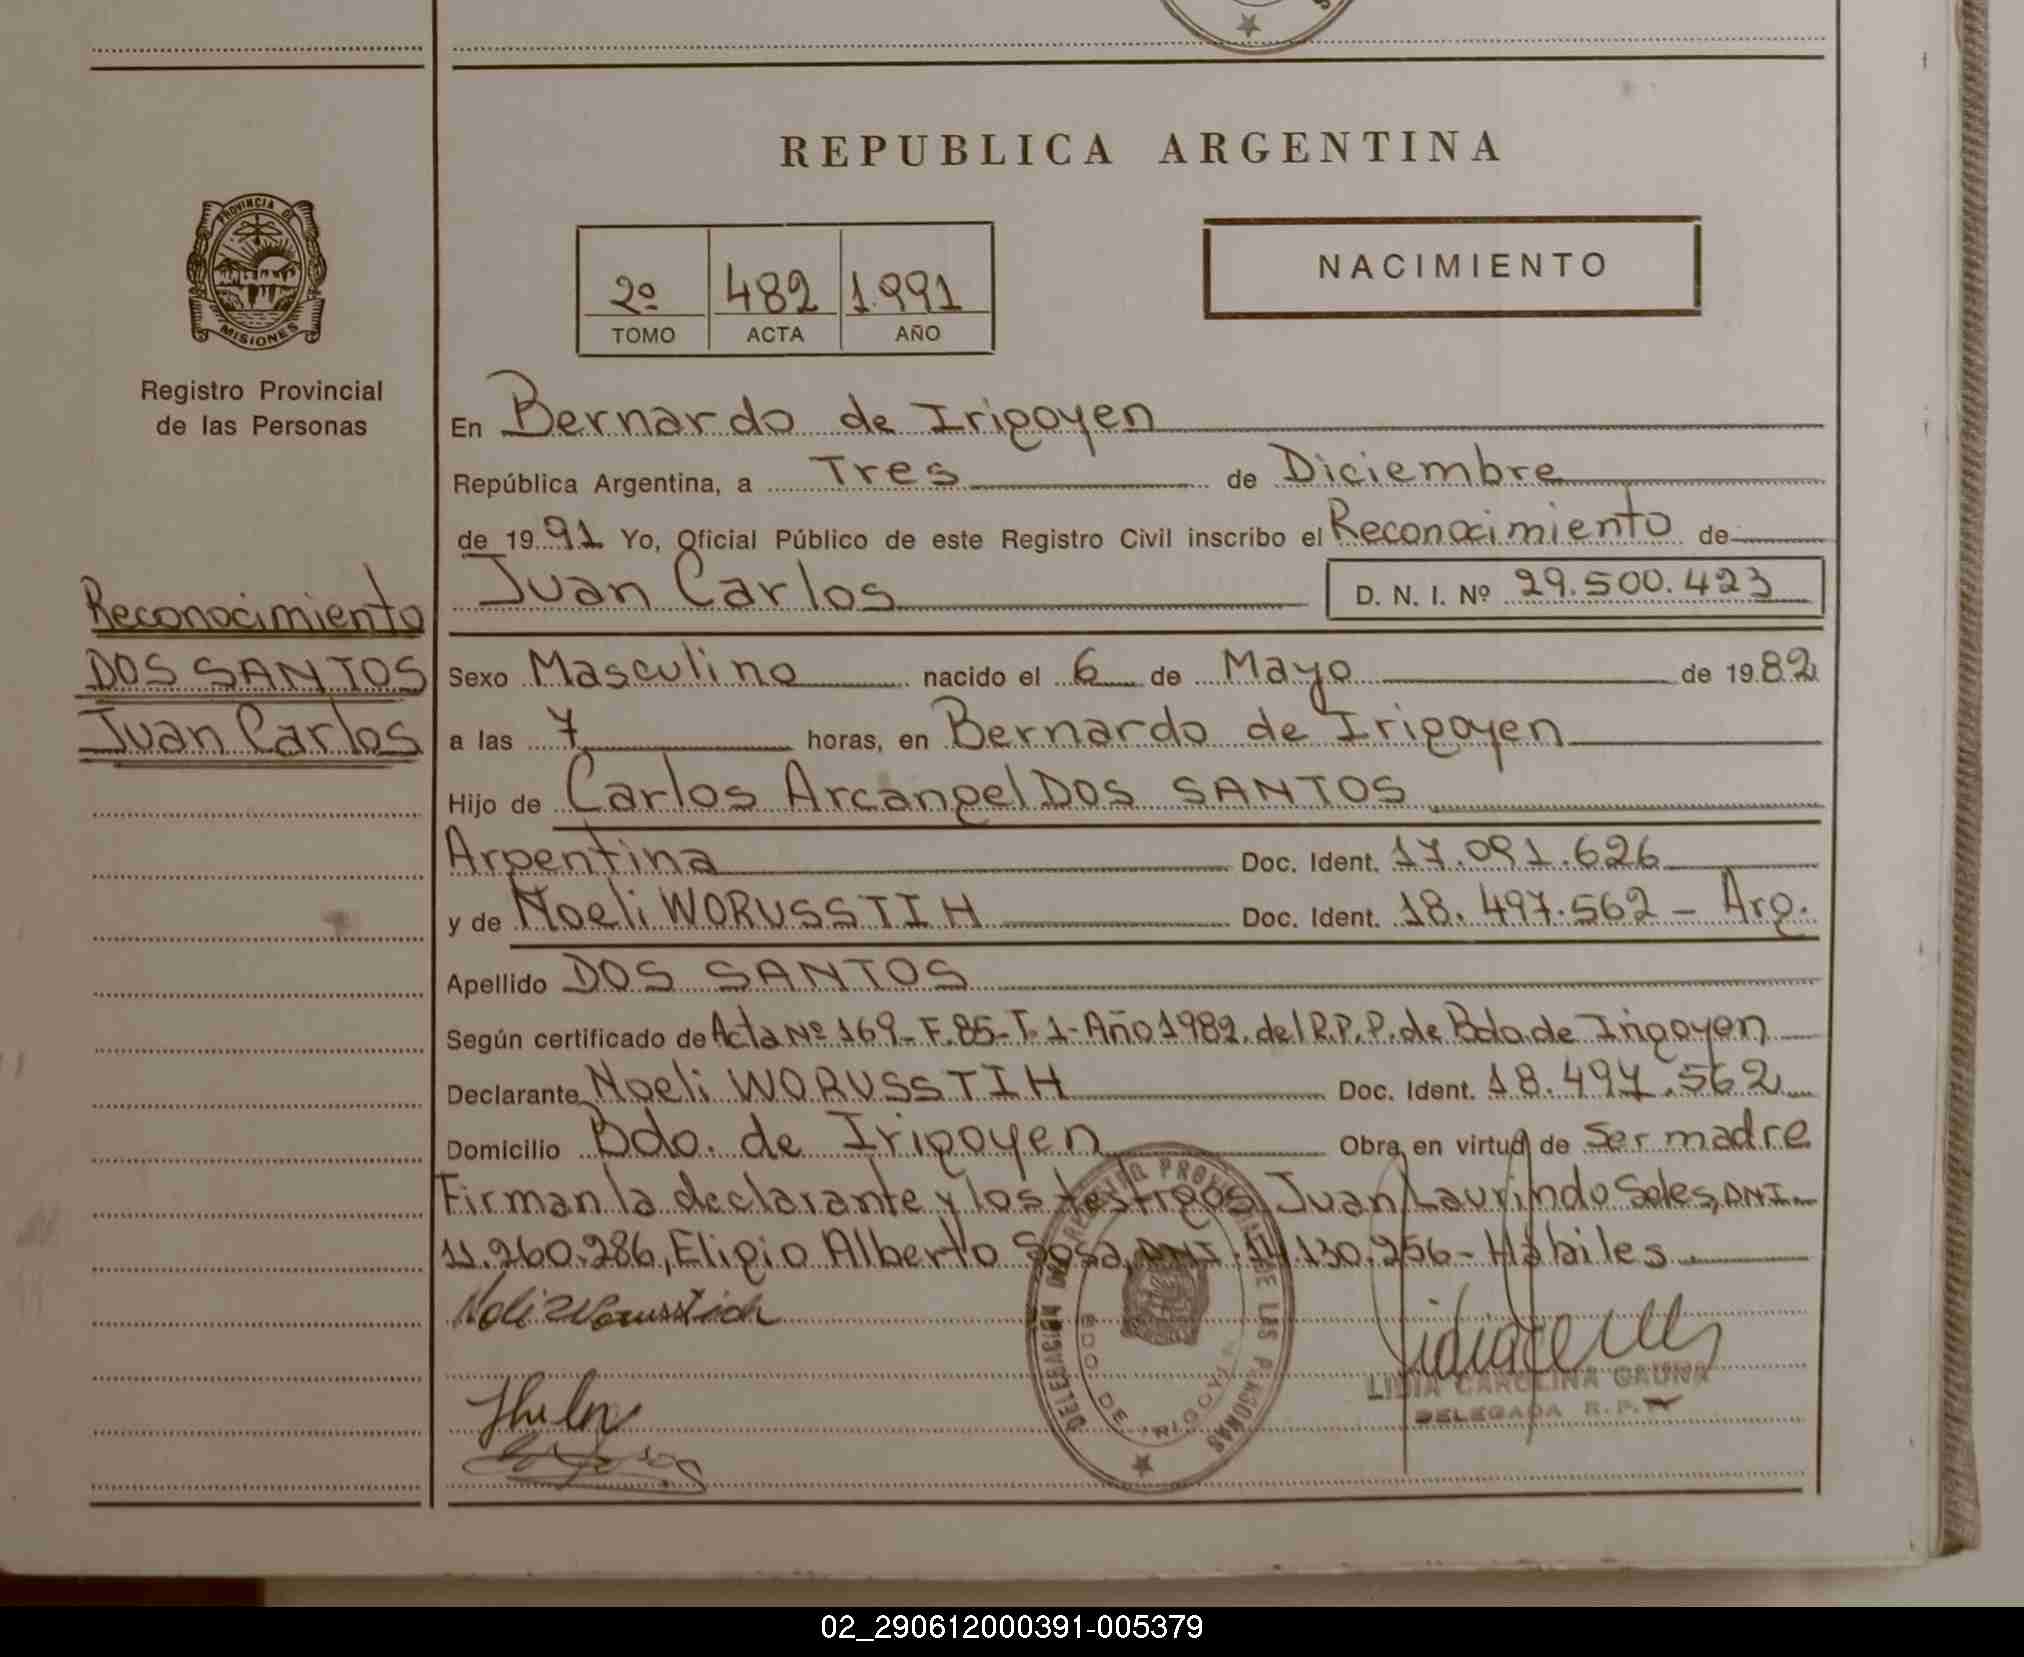 REPUBLICA ARGENTINA
PROVINCIA DE
MISIONES
Registro Provincial
de las Personas
2º 482 1.991
TOMO ACTA AÑO
NACIMIENTO
Reconocimiento
DOS SANTOS
Juan Carlos
En Bernardo de Irigoyen
República Argentina, a Tres de Diciembre
de 1991 Yo, Oficial Público de este Registro Civil inscribo el Reconocimiento de
Juan Carlos D. N. I. Nº 29.500.423
Sexo Masculino nacido el 6 de Mayo de 1982
a las 7 horas, en Bernardo de Irigoyen
Hijo de Carlos Arcangel DOS SANTOS
Argentina Doc. Ident. 17.091.626
y de Noeli WORUSSTIH Doc. Ident. 18.497.562 - Arg.
Apellido DOS SANTOS
Según certificado de Acta Nº 169-F.85-T.1-Año 1982.del R.P.P. de Bdo de Irigoyen
Declarante Noeli WORUSSTIH Doc. Ident. 18.497.562
Domicilio Bdo. de Irigoyen Obra en virtud de Ser madre
Firman la declarante y los testigos Juan Laurindo Soles, DNI.
11.260.286, Eligio Alberto Sosa, DNI. 14.130.256 - Hábiles
Noli Worusstich
LIDIA CAROLINA GAUNA
DELEGADA R.P.P.
DELEGACION DEL REGISTRO PROVINCIAL DE LAS PERSONAS
BDO. DE IRIGOYEN
02_290612000391-005379